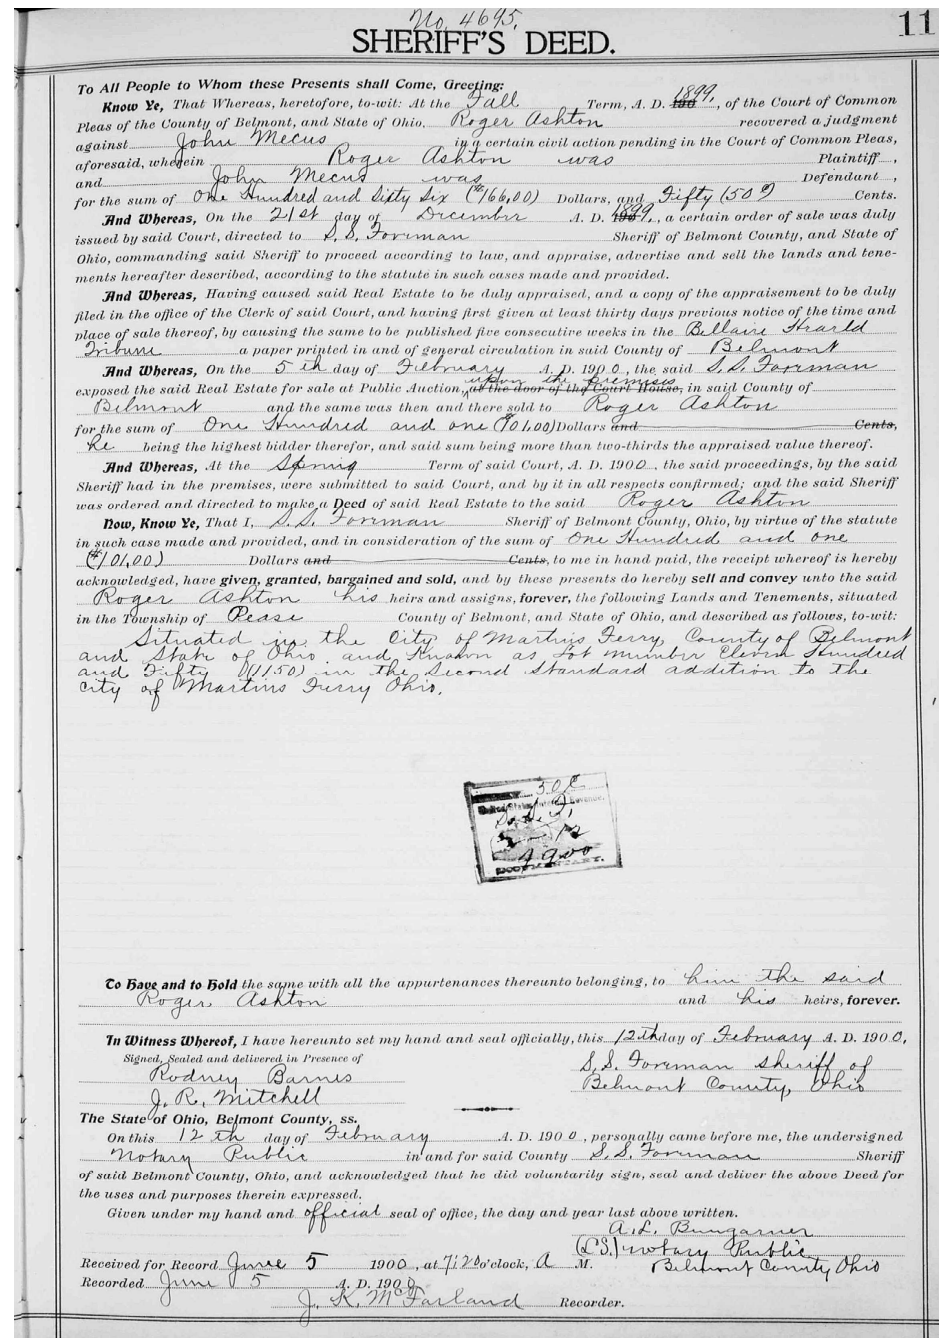 No. 4695.
11
SHERIFF'S DEED.
To All People to Whom these Presents shall Come, Greeting:
Know Ye, That Whereas, heretofore, to-wit: At the Fall Term, A. D. 1899, of the Court of Common
Pleas of the County of Belmont, and State of Ohio, Roger Ashton recovered a judgment
against John Mecus in a certain civil action pending in the Court of Common Pleas,
aforesaid, wherein Roger Ashton was Plaintiff,
and John Mecus was Defendant,
for the sum of One Hundred and Sixty Six ($166,00) Dollars, and Fifty (50¢) Cents.
And Whereas, On the 21st day of December A. D. 1899, a certain order of sale was duly
issued by said Court, directed to S. S. Foreman Sheriff of Belmont County, and State of
Ohio, commanding said Sheriff to proceed according to law, and appraise, advertise and sell the lands and tene-
ments hereafter described, according to the statute in such cases made and provided.
And Whereas, Having caused said Real Estate to be duly appraised, and a copy of the appraisement to be duly
filed in the office of the Clerk of said Court, and having first given at least thirty days previous notice of the time and
place of sale thereof, by causing the same to be published five consecutive weeks in the Bellaire Hearld
Tribune a paper printed in and of general circulation in said County of Belmont
And Whereas, On the 5th day of February A. D. 1900, the said S. S. Foreman
exposed the said Real Estate for sale at Public Auction, upon the premises at the door of the Court House, in said County of
Belmont and the same was then and there sold to Roger Ashton
for the sum of One Hundred and one ($101,00) Dollars and Cents,
he being the highest bidder therefor, and said sum being more than two-thirds the appraised value thereof.
And Whereas, At the Spring Term of said Court, A. D. 1900, the said proceedings, by the said
Sheriff had in the premises, were submitted to said Court, and by it in all respects confirmed; and the said Sheriff
was ordered and directed to make a Deed of said Real Estate to the said Roger Ashton
Now, Know Ye, That I, S. S. Foreman Sheriff of Belmont County, Ohio, by virtue of the statute
in such case made and provided, and in consideration of the sum of One Hundred and one
($101,00) Dollars and Cents, to me in hand paid, the receipt whereof is hereby
acknowledged, have given, granted, bargained and sold, and by these presents do hereby sell and convey unto the said
Roger Ashton his heirs and assigns, forever, the following Lands and Tenements, situated
in the Township of Pease County of Belmont, and State of Ohio, and described as follows, to-wit:
Situated in the City of Martins Ferry, County of Belmont
and State of Ohio and Known as Lot number Eleven Hundred
and Fifty (1150) in the Second Standard addition to the
city of Martins Ferry Ohio.
50¢
S. S. F.
1900
DOCUMENTARY.
To Have and to Hold the same with all the appurtenances thereunto belonging, to him the said
Roger Ashton and his heirs, forever.
In Witness Whereof, I have hereunto set my hand and seal officially, this 12th day of February A. D. 1900,
Signed, Sealed and delivered in Presence of
Rodney Barnes
J. R. Mitchell
S. S. Foreman Sheriff of
Belmont County, Ohio
The State of Ohio, Belmont County, ss.
On this 12th day of February A. D. 1900, personally came before me, the undersigned
Notary Public in and for said County S. S. Foreman Sheriff
of said Belmont County, Ohio, and acknowledged that he did voluntarily sign, seal and deliver the above Deed for
the uses and purposes therein expressed.
Given under my hand and official seal of office, the day and year last above written.
A. L. Bumgarner
(L.S.) Notary Public
Belmont County Ohio
Received for Record June 5 1900, at 7:20 o'clock, A M.
Recorded June 5 A. D. 1900
J. K. McFarland Recorder.